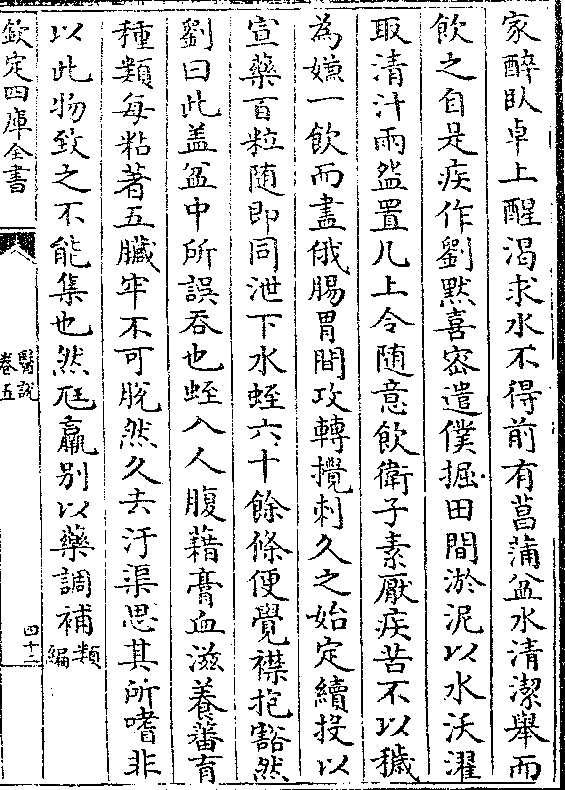 家醉臥卓上醒渴求水不得前有菖蒲盆水清潔舉而
飲之自是疾作劉黙喜宻遣僕掘田間淤泥以水沃濯
取清汁兩盌置几上令随意飲衛子素厭疾苦不以穢
為嫌一飲而盡俄腸胃間攻轉攪刺久之始定續投以
宣藥百粒随即同泄下水蛭六十餘條便覺襟抱豁然
劉曰此盖盆中所誤吞也蛭入人腹藉膏血滋養蕃育
種類毎粘著五臟牢不可脫然久去汙渠思其所嗜非
以此物致之不能集也然尫羸别以藥調補類編
欽定四庫全書
醫說
卷五
四十二